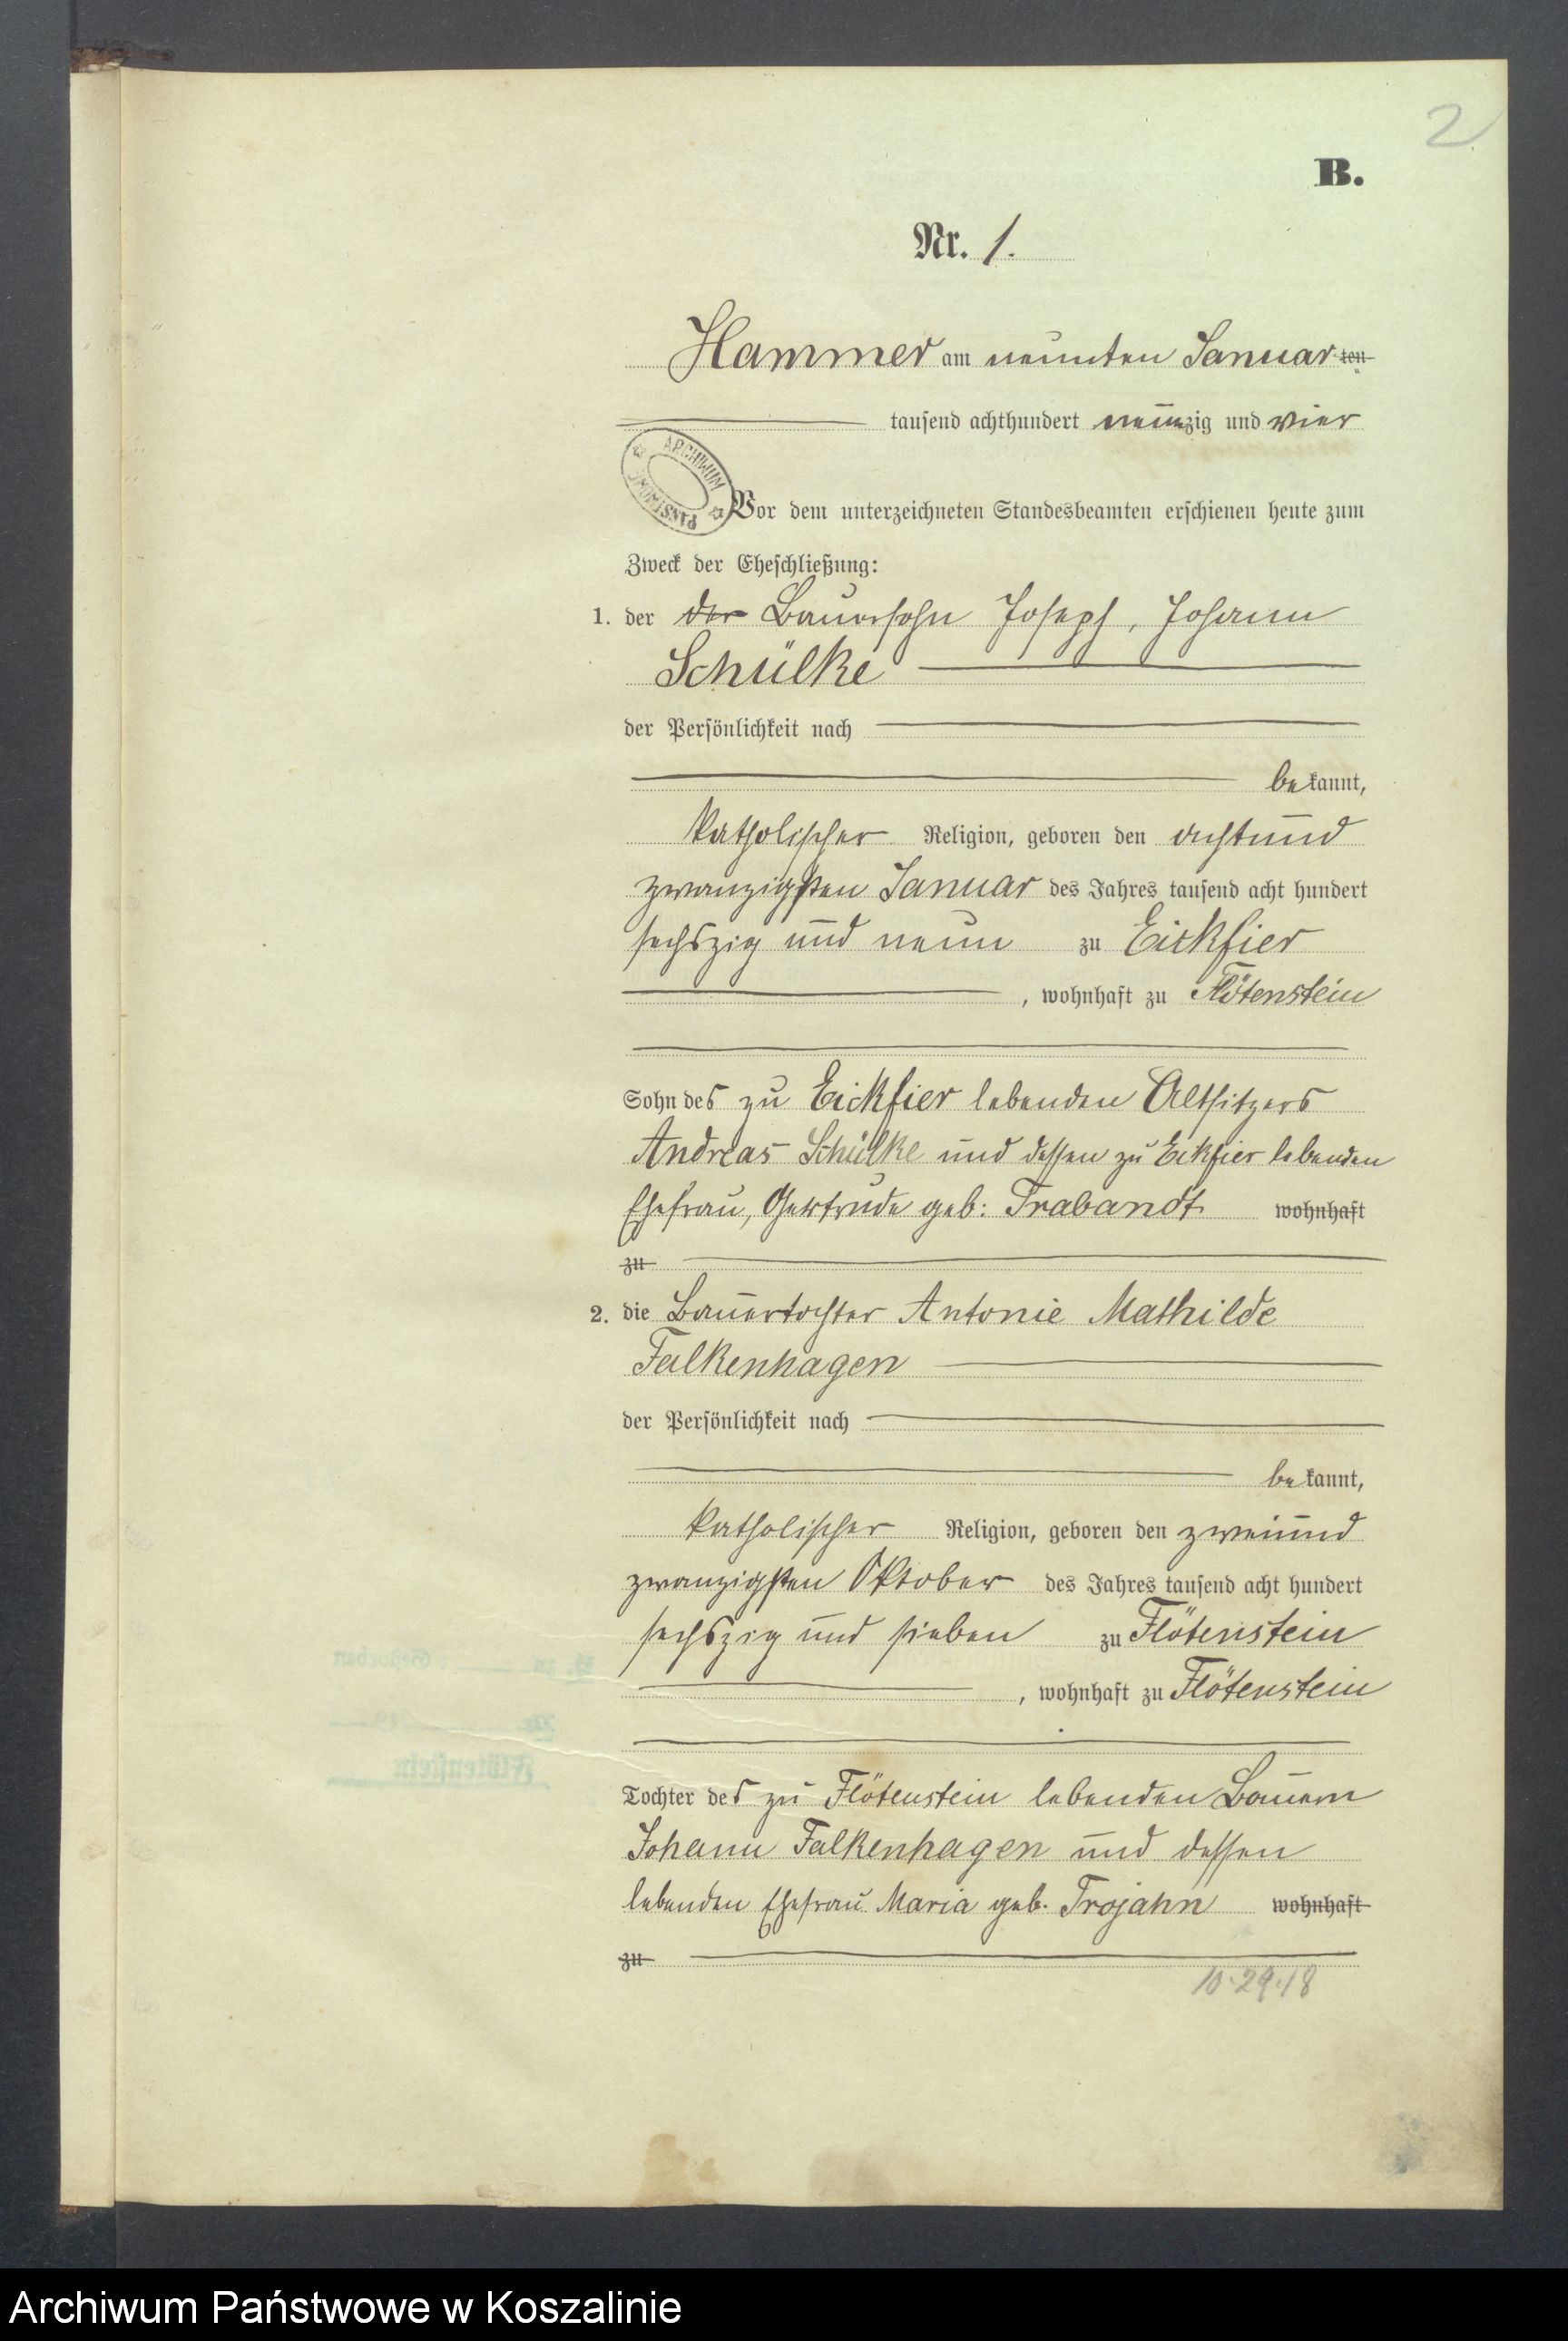 2
B.
Nr. 1.
Hammer am neunten Januar ten
tausend achthundert neunzig und vier
ARCHIWUM PAŃSTWOWE
Vor dem unterzeichneten Standesbeamten erschienen heute zum
Zweck der Eheschließung:
1. der der Bauersohn Joseph, Johann
Schülke
der Persönlichkeit nach
bekannt,
katholischer Religion, geboren den achtund
zwanzigsten Januar des Jahres tausend acht hundert
sechszig und neun zu Eickfier
, wohnhaft zu Flötenstein
Sohn des zu Eickfier lebenden Altsitzers
Andreas Schülke und dessen zu Eickfier lebenden
Ehefrau, Gertrude geb: Trabandt wohnhaft
zu
2. die Bauertochter Antonie Mathilde
Falkenhagen
der Persönlichkeit nach
bekannt,
katholischer Religion, geboren den zweiund
zwanzigsten Oktober des Jahres tausend acht hundert
sechszig und sieben zu Flötenstein
, wohnhaft zu Flötenstein
Tochter des zu Flötenstein lebenden Bauern
Johann Falkenhagen und dessen
lebenden Ehefrau Maria geb. Trojahn wohnhaft
zu
10.29.18
Archiwum Państwowe w Koszalinie